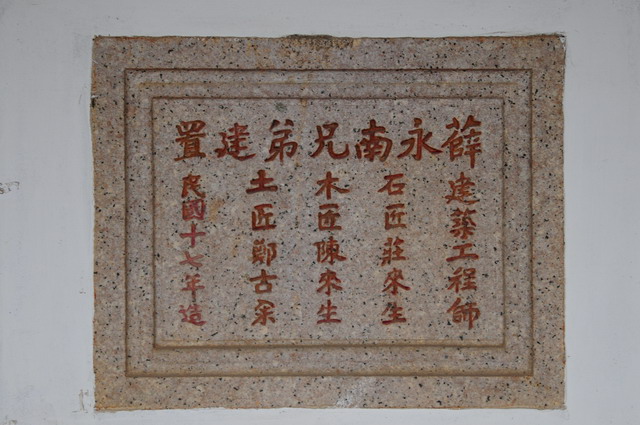 薛永南兄弟建置
建築工程師
石匠莊來生
木匠陳來生
土匠鄭古朵
民國十七年造